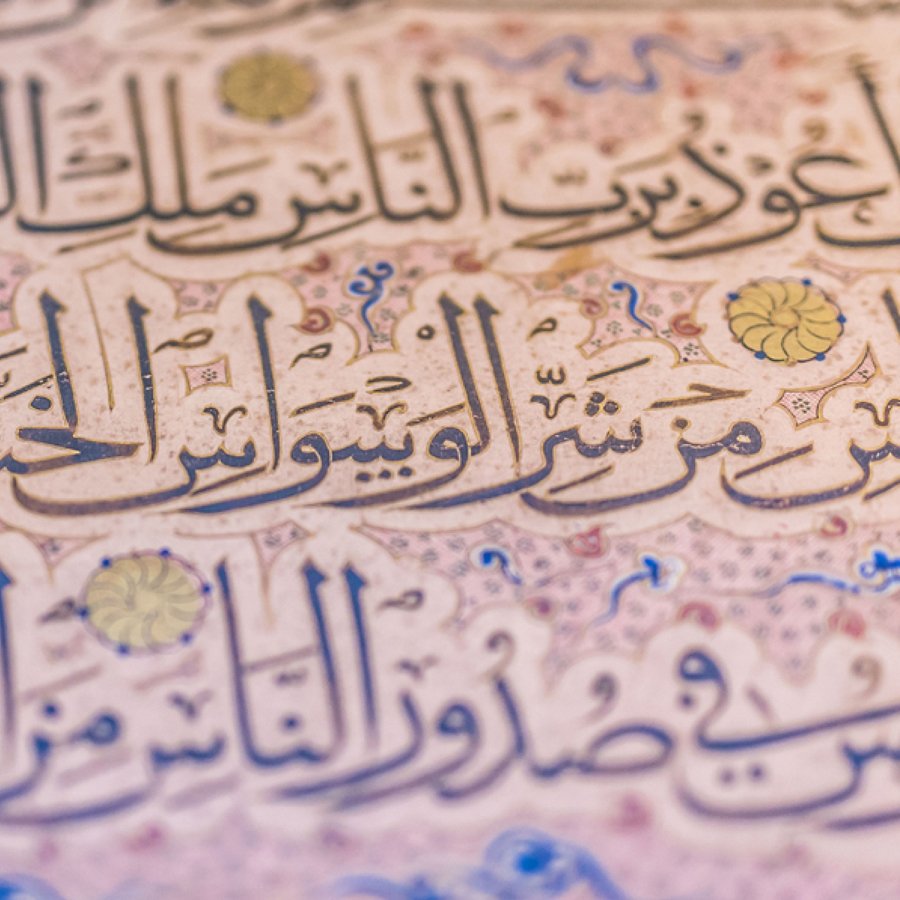 أَعُوْذُ بِرَبِّ النَّاسِ مَلِكِ
مِنْ شَرِّ الْوَسْوَاسِ
فِي صُدُوْرِ النَّاسِ مِنَ